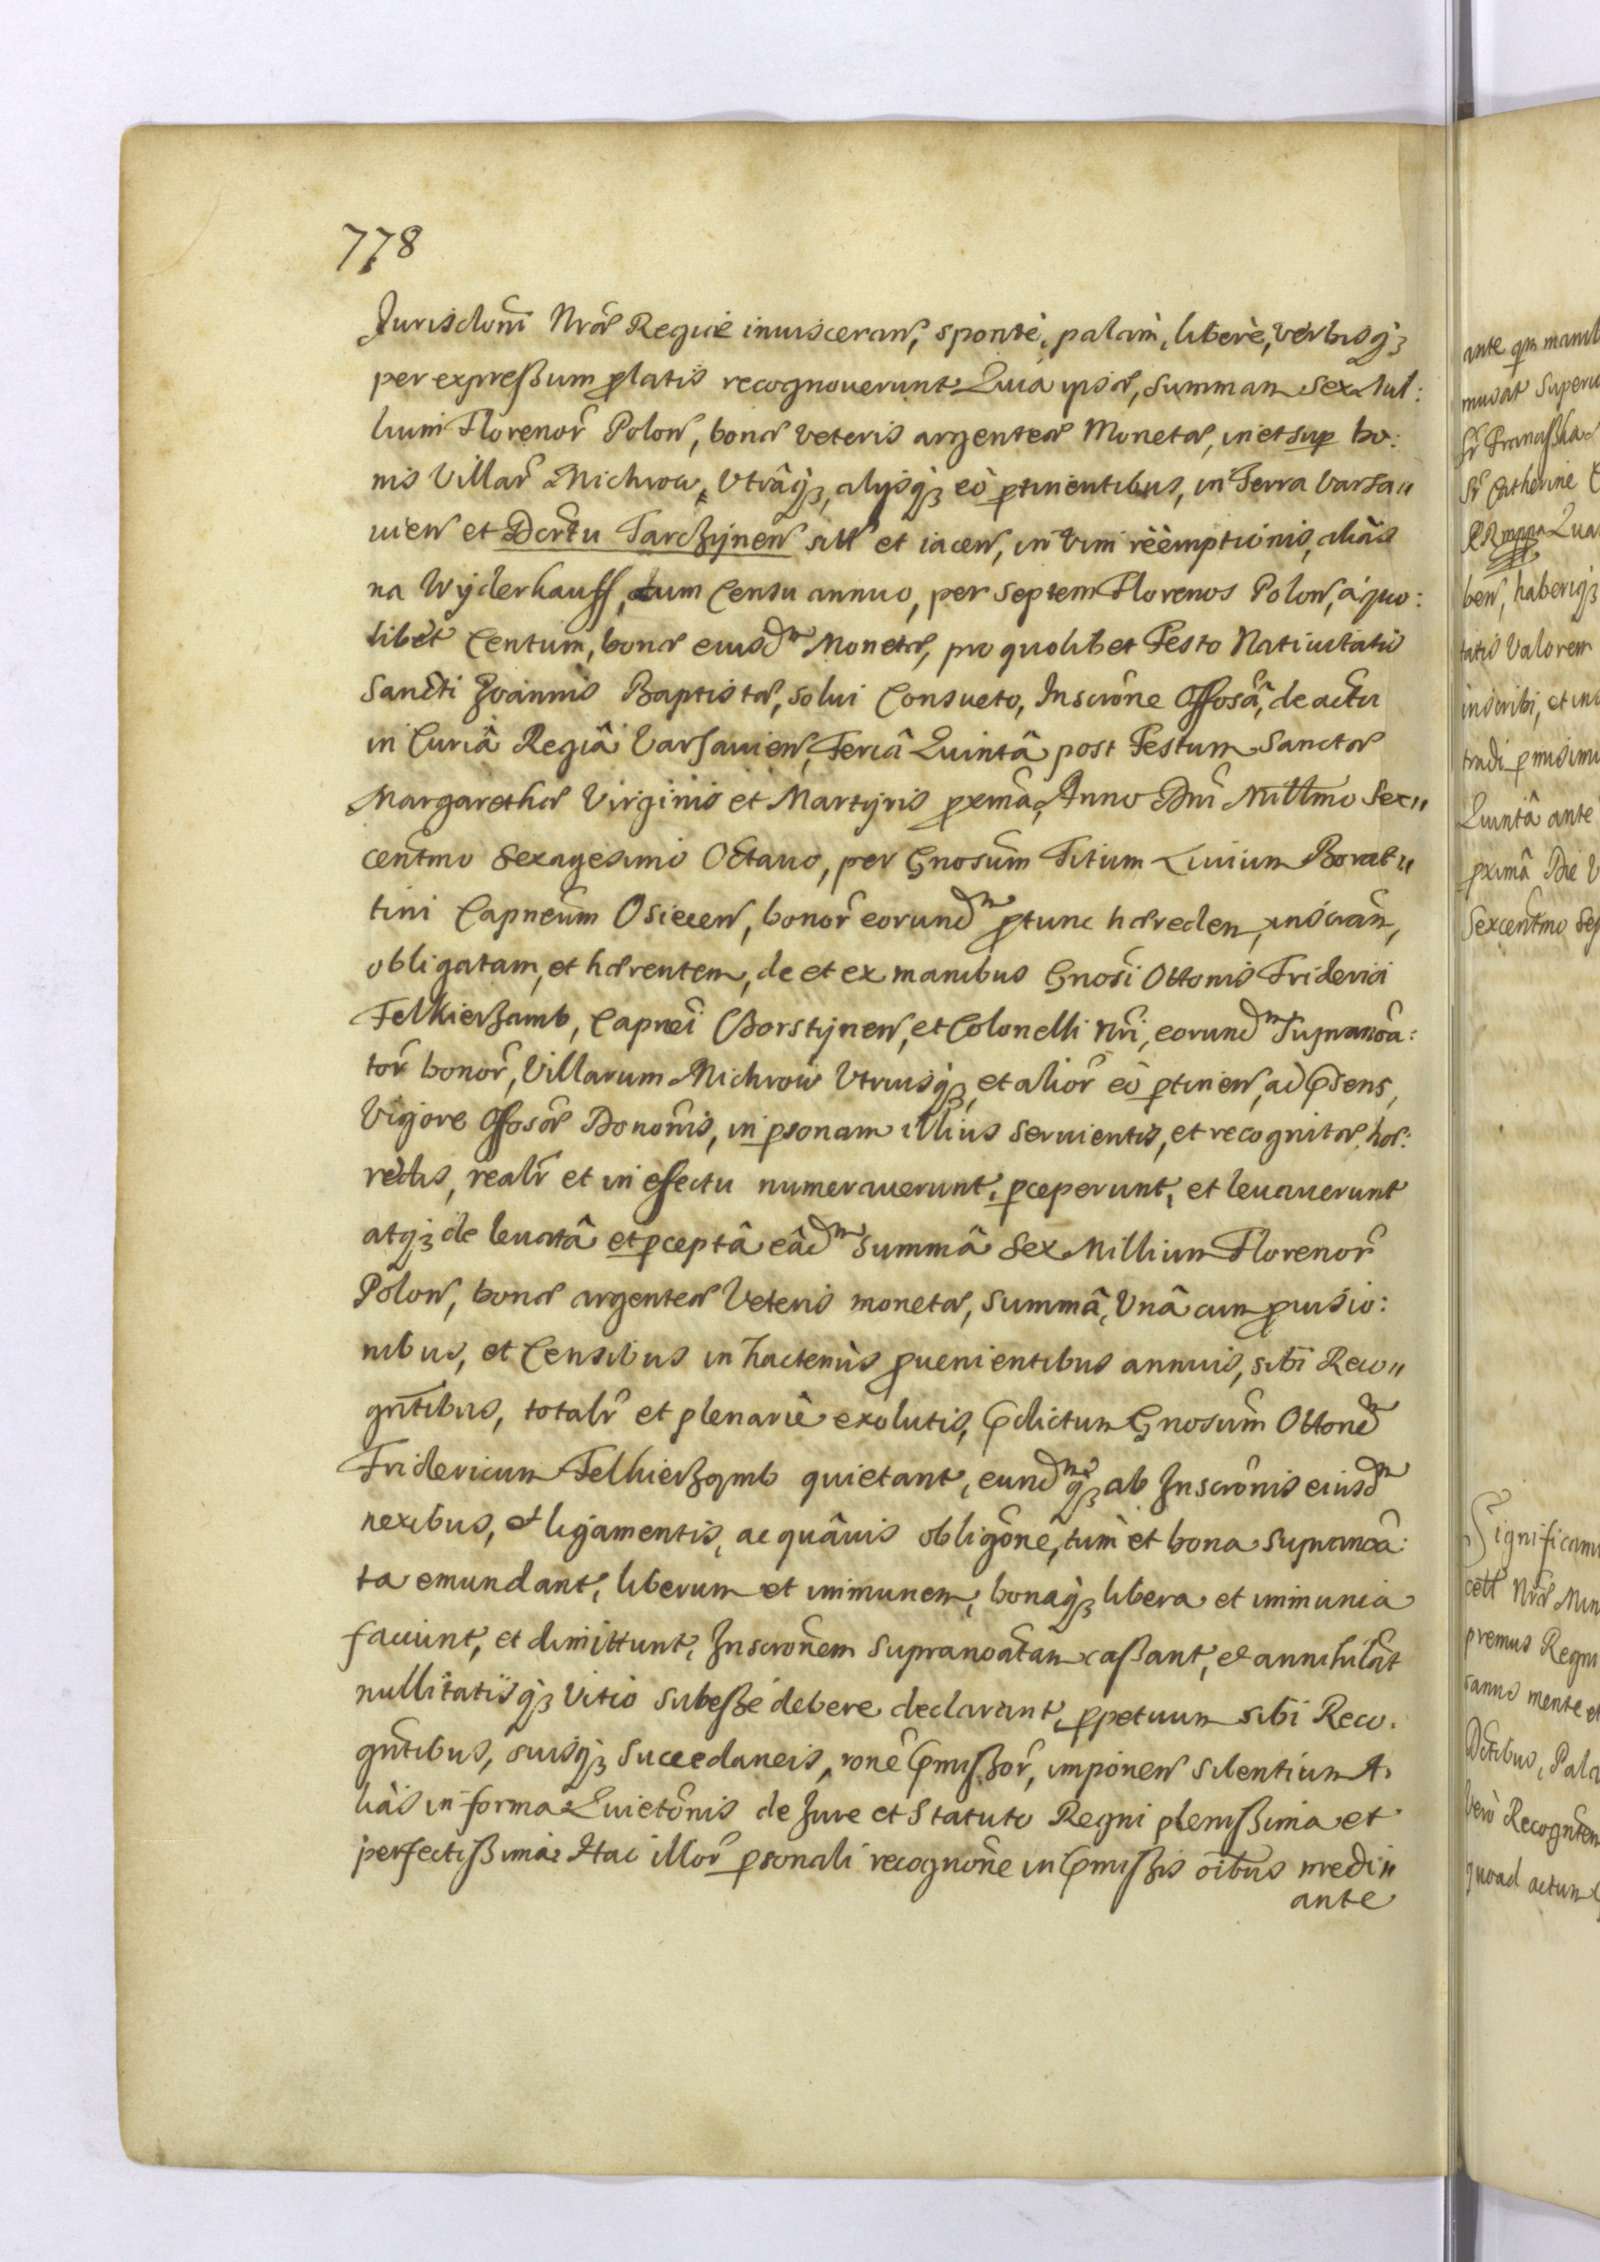 778
Jurisdoni Nrae Regiae inuisceran, sponte, palàm, liberè, verbisq3
per expreßum platis recognouerunt Quia ipsae, summam sex Mil:
lium Florenor Polon, bonae veteris argenteae Monetae, in et sup bo:
nis Villar Michrow, Vtrâq3, alysq3 eò ptinentibus, in Terra Varsa"
uien et Dcrtu Tarczynen sitt et iacen, in vim reèmptionis, aliàs
na Wyderkauff, cum Censu annuo, per septem Florenos Polon, à quo:
libet Centum, bonae eiusdm Monetae, pro quolibet Festo Natiuitatis
Sancti Joannis Baptistae, solui Consueto, Inscrone Offosâ, de actu
in Curiâ Regiâ Varsauien, Feriâ Quintâ post Festum Sanctae
Margarethae Virginis et Martyris pximâ, Anno Dni Millmo Sex"
centmo Sexagesimo Octauo, per Gnosum Titum Liuium Borat"
tini Capneum Osiecen, bonor eorundm ptunc haeredem, inscram,
obligatam, et haerentem, de et ex manibus Gnosi Ottonis Friderici
Felkierzamb, Capnei Borstynen, et Colonelli Nri, eorundm Supranoa:
tor bonor, Villarum Michrow Vtriusq3, et alior eò ptinen, ad psens,
Vigore Offosae Dononis, in psonam illius seruientis, et recognitae, hae:
redis, realr et in efectu numerauerunt, pceperunt, et leuauerunt
atq3 de leuatâ et pceptâ eâdm summâ Sex Millium Florenor
Polon, bonae argenteae Veteris monetae, summâ, Vnâ cum prouisio:
nibus, et Censibus in hactenùs puenientibus annuis, sibi Reco"
gntibus, totalr et plenariè exolutis, pdictum Gnosum Ottonem
Fridericum Felkierzamb quietant, eundmq3 ab Inscronis eiusdm
nexibus, et ligamentis, ac quâuis obligone, tum et bona supranoa:
ta emundant, liberum et immunem, bonaq3 libera et immunia
faciunt, et dimittunt, Inscronem supranoatam caßant, et annihilat
nullitatisq3 vitio subeße debere declarant, ppetuum sibi Reco.
gntibus, suisq3 succedaneis, rone pmißor, imponen silentium A.
liàs in forma Quietonis de Jure et Statuto Regni plenißima et
perfectißima. Hac illor psonali recognone in pmißis oibus medi"
ante